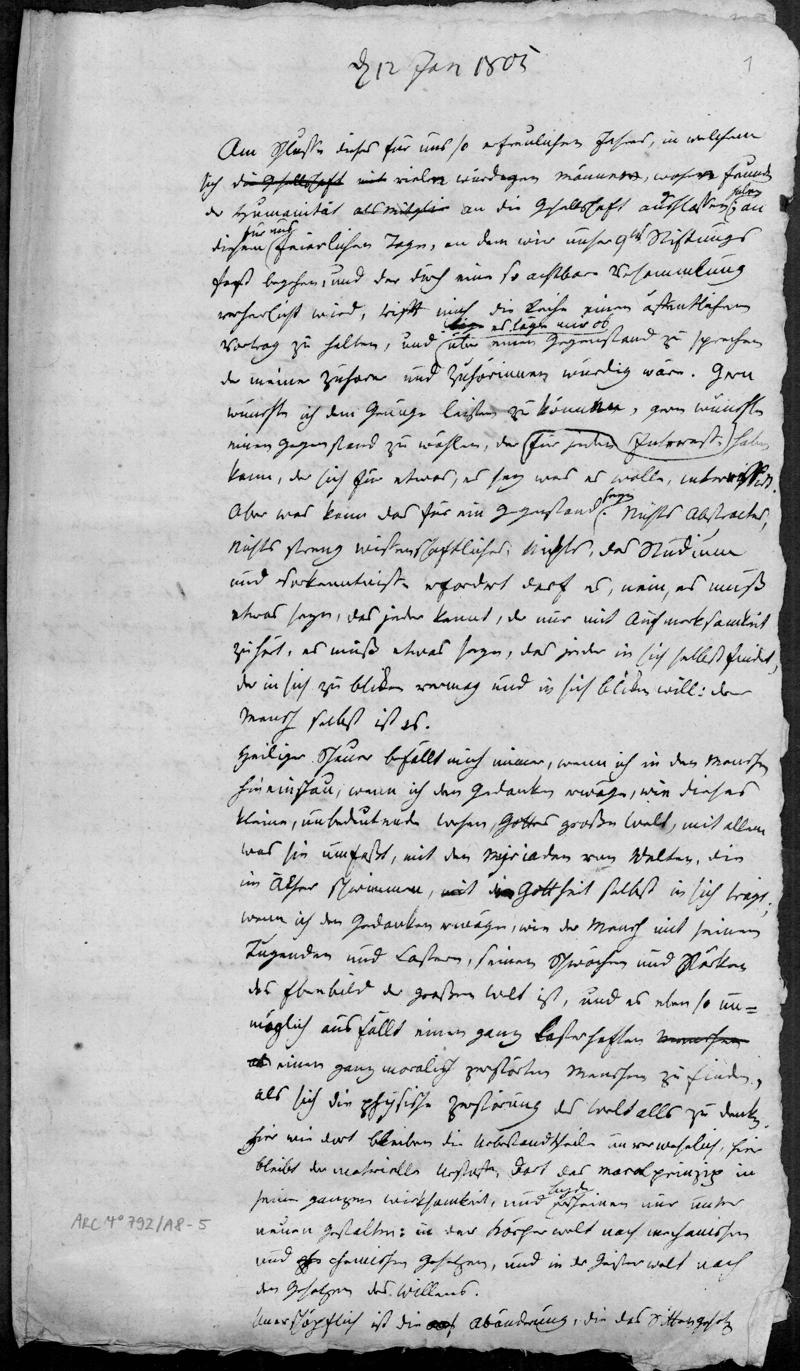 d 12 Jan 1805
1
Am Schlusse dieses für uns so erfreulichen Jahres, in welchem
sich die Gesellschaft mit vielen würdigen Männern, wahren Freunden
der Humanität als Mitglie an die Gesellschaft anschlossen; an
diesem für uns feierlichen Tage, an dem wir unser 9tes Stiftungs
fest begehen, und der durch eine so achtbare Versammlung
verherlicht wird, trift mich die Reihe einen öffentlichen
Vortrag zu halten, und es läge mir ob
über einen Gegenstand zu sprechen
der meiner Zuhörer und Zuhörinnen würdig wäre. Gern
wünschte ich dem Genüge leisten zu können, gern wünschte
einen Gegenstand zu wählen, der für jeden Interesse haben
kann, der sich für etwas, es sey was es wolle, interessirt.
Aber was kann das für ein Gegenstand seyn? Nichts Abstractes,
Nichts streng wissenschaftliches; Nichts, das Studium
und Vorkenntnisse erfordert darf es, nein, es muß
etwas seyn, das jeder kennt, der nur mit Aufmerksamkeit
zuhört, es muß etwas seyn, das jeder in sich selbst findet,
der in sich zu blicken vermag und in sich blicken will: der
Mensch selbst ist es.
Heiliger Schauer befällt mich immer, wenn ich in den Menschen
hineinschau, wenn ich den Gedanken erwäge, wie dieses
kleine, unbedeutende Wesen, Gottes große Welt, mit allem
was sie umfaßt, mit den Myriaden von Welten, die
im Äther schwimmen, mit die Gottheit selbst in sich trägt;
wenn ich den Gedanken erwäge, wie der Mensch mit seinen
Tugenden und Lastern, seinen Schwächen und Stärken
das Ebenbild der großen Welt ist, und es eben so un=
möglich ausfällt einen ganz lasterhaften Menschen
einen ganz moralisch zerstörten Menschen zu finden,
als sich die physische Zerstörung des Weltalls zu denken.
Hier wie dort bleiben die Urbestandtheile unverweslich, hier
bleibt der materielle Urstoff, dort das Moralprinzip in
seiner ganzen Wirksamkeit, und beyde erscheinen nur unter
neuen Gestalten: in der Körperwelt nach mechanischen
und chemischen Gesetzen, und in der Geisterwelt nach
den Gesetzen des Willens.
Unerschöpflich ist die Abänderung, die das Sittengesetz
ARC 4° 792/A8-5